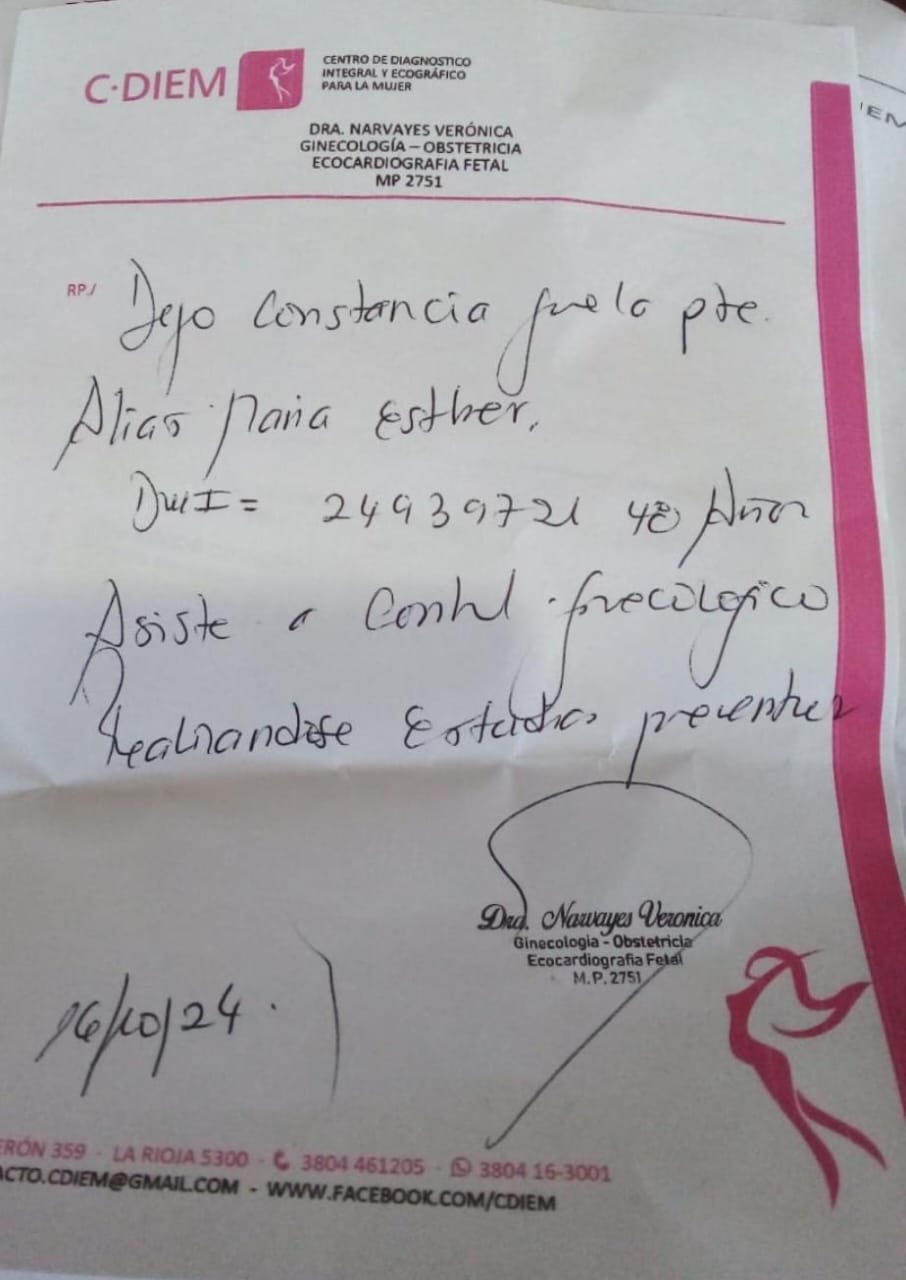 C·DIEM
CENTRO DE DIAGNOSTICO
INTEGRAL Y ECOGRÁFICO
PARA LA MUJER
DRA. NARVAYES VERÓNICA
GINECOLOGÍA – OBSTETRICIA
ECOCARDIOGRAFIA FETAL
MP 2751
RP./ Dejo Constancia que la pte.
Alias Maria Esther.
DNI = 24939721 48 Años
Asiste a Control ginecologico
Realizandose Estudios preventivos
Dra. Narvayes Veronica
Ginecologia - Obstetricia
Ecocardiografia Fetal
M.P. 2751
16/10/24.
ERÓN 359 - LA RIOJA 5300 - 3804 461205 - 3804 16-3001
ACTO.CDIEM@GMAIL.COM - WWW.FACEBOOK.COM/CDIEM